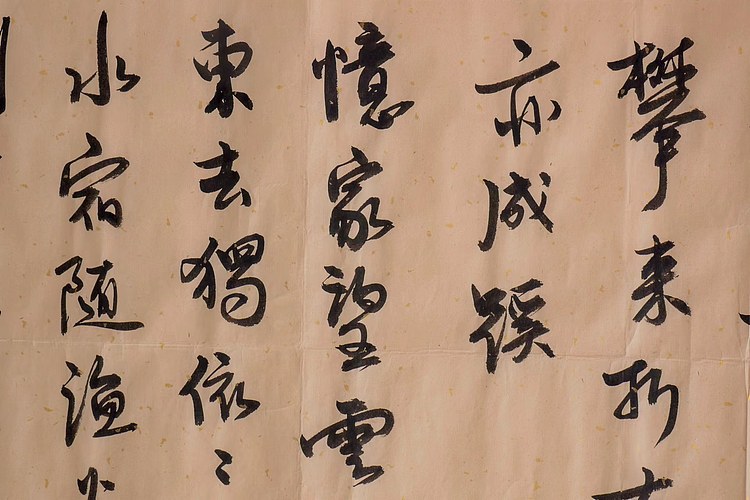 攀来折
亦成蹊
憶家望雲
東去獨依〻
水宿随漁火